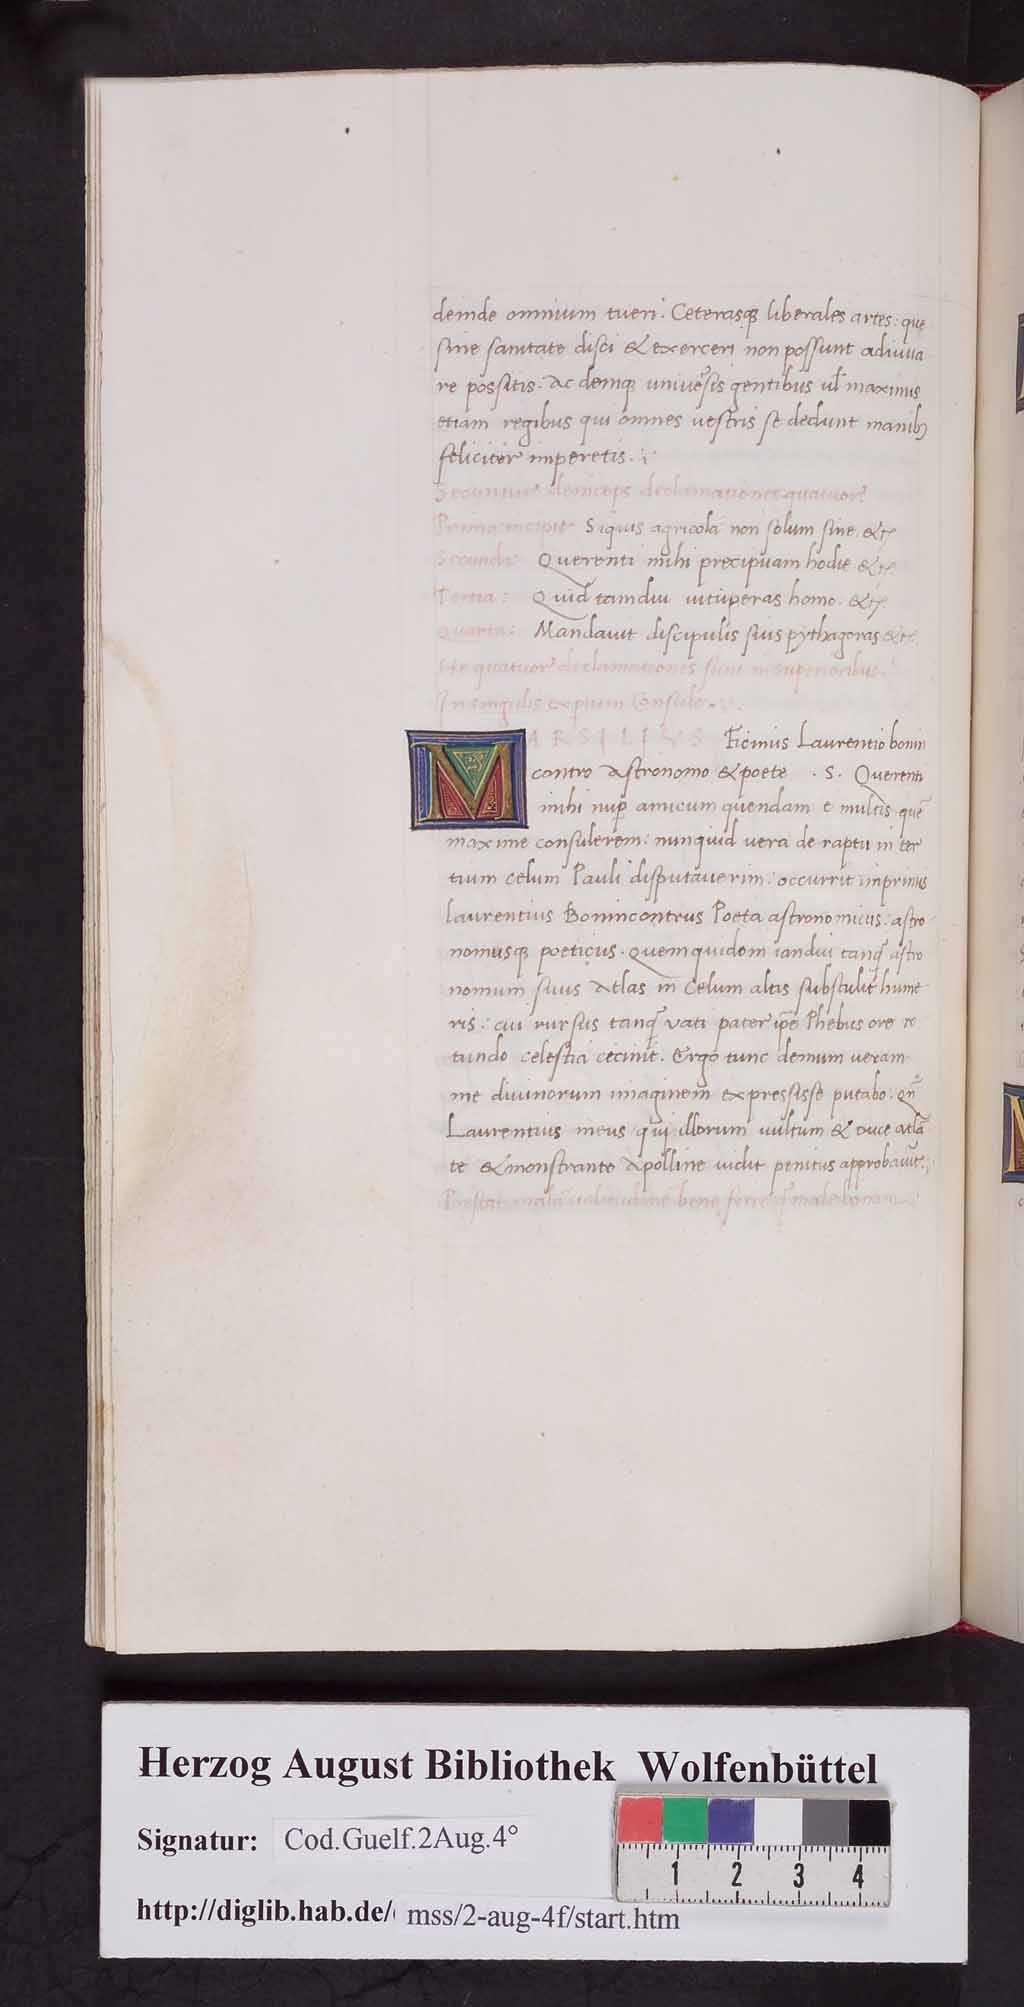 deinde omnium tueri. Ceterasqꝫ liberales artes: que
sine sanitate disci & exerceri non possunt adiuua
re possitis: ac demqꝫ uniuersis gentibus ul' maximus
etiam regibus qui omnes uestris se dedunt manibꝫ
feliciter imperetis.
Secuntur deinceps declamationes quatuor.
Prima incipit Siquis agricola non solum sine. &c.
Secunda Querenti mihi precipuam hodie &c.
Tertia: Quid tamdiu uituperas homo. &c.
Quarta: Mandauit discipulis suis pythagoras &c.
He quatuor declamationes sunt in superioribus.
In singulis exprium Consule.
MARSILIVS Ficinus Laurentio bonin
contro astronomo & poete . S. Querenti
mihi nup̄ amicum quendam e multis quē
maxime consulerem: nunquid uera de raptu in ter
tium celum Pauli disputauerim: occurrit imprimis
laurentius Bonincontrus Poeta astronomicus: astro
nomusqꝫ poeticus. Quemquidem iandiu tanq̄ astro
nomum suus Atlas in celum altis substulit hume
ris: cui rursus tanq̄ vati pater ip̄e Phebus ore ro
tundo celestia cecinit. Ergo tunc demum veram
me diuinorum imaginem expressisse putabo. qn̄
Laurentius meus qui illorum uultum & duce atlā
te & monstrante Apolline uidit penitus approbauit.
Prestat malā ualitudinē bene ferre q̄ male bonam
Herzog August Bibliothek Wolfenbüttel
Signatur: Cod.Guelf.2Aug.4°
1 2 3 4
http://diglib.hab.de/ mss/2-aug-4f/start.htm